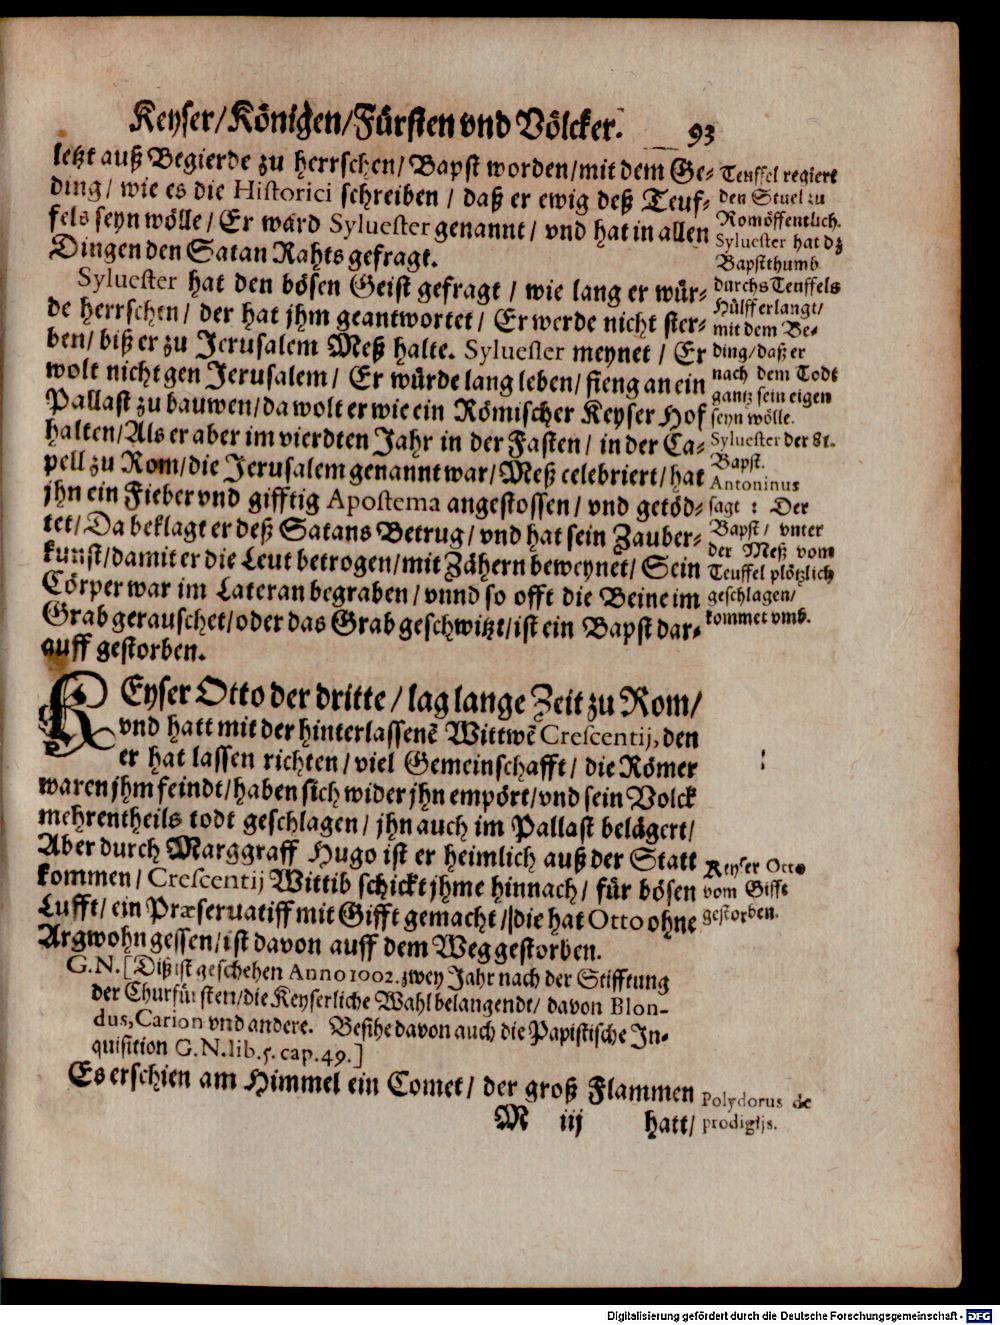 Keyser/Königen/Fürsten vnd Völcker. 93
letzt auß Begierde zu herrschen/ Bapst worden/mit dem Ge-
ding/ wie es die Historici schreiben / daß er ewig deß Teuf-
fels seyn wölle/ Er ward Syluester genannt/ vnd hat in allen
Dingen den Satan Rahts gefragt.
Syluester hat den bösen Geist gefragt / wie lang er wür-
de herrschen/ der hat jhm geantwortet/ Er werde nicht ster-
ben/ biß er zu Jerusalem Meß halte. Syluester meynet / Er
wolt nicht gen Jerusalem/ Er würde lang leben/ fieng an ein
Pallast zu bauwen/da wolt er wie ein Römischer Keyser Hof
halten/Als er aber im vierdten Jahr in der Fasten/ in der Ca-
pell zu Rom/die Jerusalem genannt war/Meß celebriert/hat
jhn ein Fieber vnd gifftig Apostema angestossen/ vnd getöd-
tet/Da beklagt er deß Satans Betrug/ vnd hat sein Zauber-
kunst/damit er die Leut betrogen/mit Zähern beweynet/ Sein
Cörper war im Lateran begraben/ vnnd so offt die Beine im
Grab gerauschet/oder das Grab geschwitzt/ist ein Bapst dar-
auff gestorben.
Teuffel regiert
den Stuel zu
Rom öffentlich.
Syluester hat dz
Bapstthumb
durchs Teuffels
Hülff erlangt/
mit dem Be-
ding/daß er
nach dem Todt
gantz sein eigen
seyn wölle.
Syluester der 81.
Bapst.
Antoninus
sagt : Der
Bapst/ vnter
der Meß vom
Teuffel plötzlich
geschlagen/
kommet vmb.
KEyser Otto der dritte / lag lange Zeit zu Rom/
vnd hatt mit der hinterlassenē Wittwē Crescentij, den
er hat lassen richten/ viel Gemeinschafft/ die Römer
waren jhm feindt/haben sich wider jhn empört/vnd sein Volck
mehrentheils todt geschlagen/ jhn auch im Pallast belägert/
Aber durch Marggraff Hugo ist er heimlich auß der Statt
kommen/ Crescentij Wittib schickt jhme hinnach/ für bösen
Lufft/ ein Præseruatiff mit Gifft gemacht/ die hat Otto ohne
Argwohn gessen/ist davon auff dem Weg gestorben.
Keyser Otto
vom Gifft
gestorben.
G.N. [Diß ist geschehen Anno 1002. zwey Jahr nach der Stifftung
der Churfürsten/die Keyserliche Wahl belangendt/ davon Blon-
dus, Carion vnd andere. Besihe davon auch die Papistische In-
quisition G.N.lib.5.cap.49.]
Es erschien am Himmel ein Comet/ der groß Flammen
Polydorus de
prodigijs.
M iij hatt/
Digitalisierung gefördert durch die Deutsche Forschungsgemeinschaft - DFG